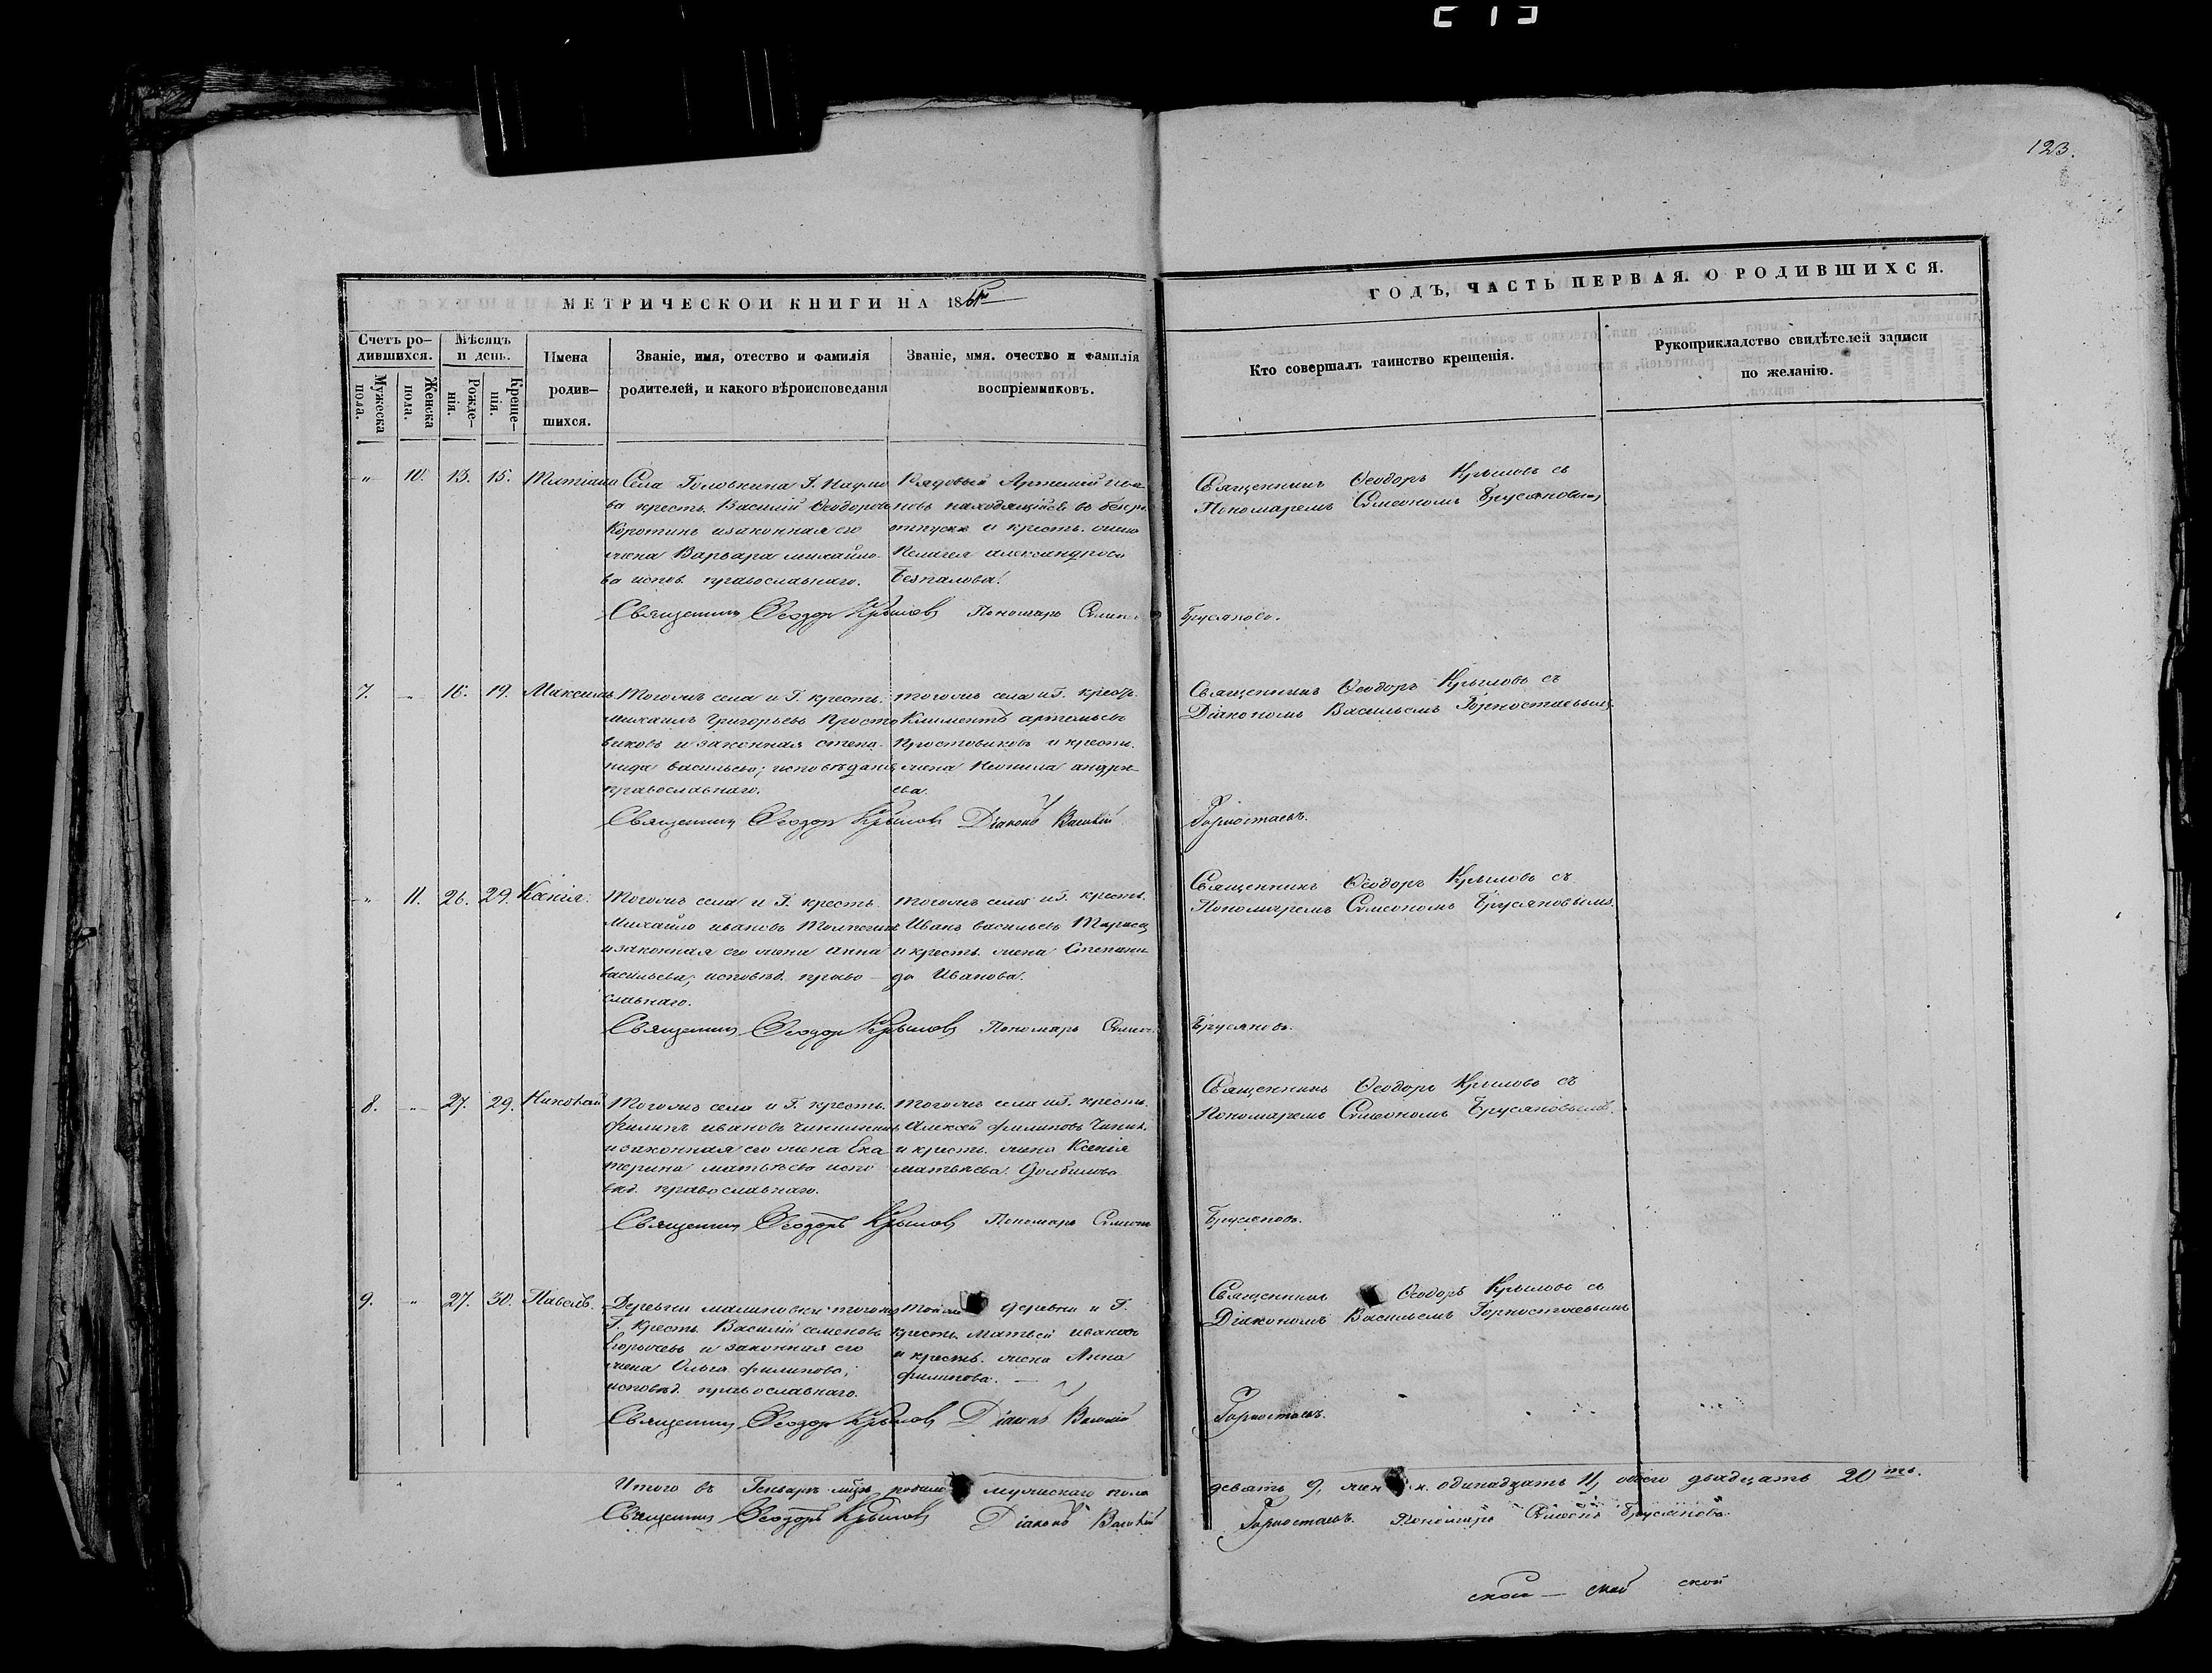 123.
МЕТРИЧЕСКОЙ КНИГИ НА 18
ГОДЪ, ЧАСТЬ ПЕРВАЯ. О РОДИВШИХСЯ.
Счетъ ро-
дившихся.
Мужеска
пола.
Женска
пола.
Мѣсяцъ
и день.
Рожде-
нія.
Креще-
нія.
Имена
родив-
шихся.
Званіе, имя, отество и фамилія
родителей, и какого вѣроисповеданія
Званіе, имя. очество и фамилія
воспріемниковъ.
Кто совершалъ таинство крещенія.
Рукоприкладство свидѣтелей записи
по желанію.
" 10. 13. 15.
Села Головкина Г. Наумо
ва крестъ. Василій Ѳеодоровъ
Коротинъ изаконная его
жена Варвара михайло-
ва испов. православнаго.
Рядовый Артемій
новъ находящійся въ
отпуске и крестъ. жена
Пелагея александрова
Безпалова.
Священникъ Ѳеодоръ Крыловъ съ
Пономаремъ Симеономъ Брусяновымъ
Священникъ Ѳеодоръ Крыловъ Пономарь Симеонъ Брусяновъ.
7. " 16. 19. Максимъ
Тогожъ села и Г. крестъ.
михаилъ григорьевъ Просто
виковъ и законная степа-
нида васильева; исповѣданія
православнаго.
тогожъ села и Г. крестъ.
Климентъ артемьевъ
Простовиковъ и крестъ.
жена Неонила андре-
ева.
Священникъ Ѳеодоръ Крыловъ съ
Діакономъ Васильемъ Горностаевымъ
Священникъ Ѳеодоръ Крыловъ Діаконъ Василій Горностаевъ.
" 11. 26. 29. Ксенія.
Тогожъ села и Г. крестъ.
Михайло ивановъ
изаконная его жена анна
васильева; исповѣд. право-
славнаго.
тогожъ села и Г. крестъ.
Иванъ васильевъ
и крестъ. жена Степани-
да Иванова.
Священникъ Ѳеодоръ Крыловъ съ
Пономаремъ Симеономъ Брусяновымъ.
Священникъ Ѳеодоръ Крыловъ Пономарь Симеонъ Брусяновъ.
8. " 27. 29. Николай
Тогожъ села и Г. крестъ.
филипъ ивановъ
изаконная его жена Ека
терина матвѣева испо
вѣд. православнаго.
Тогожъ села и Г. крестъ.
Алексѣй филиповъ
и крестъ. жена Ксенія
матвѣева Долбилова
Священникъ Ѳеодоръ Крыловъ съ
Пономаремъ Симеономъ Брусяновымъ.
Священникъ Ѳеодоръ Крыловъ Пономарь Симеонъ Брусяновъ.
9. " 27. 30. Павелъ.
Деревни малиновки тогожъ
Г. крестъ. Василій семеновъ
Егорычевъ и законная его
жена Ольга филипова;
исповѣд. православнаго.
деревни и Г.
крестъ. матвей ивановъ
и крестъ. жена Анна
филипова. —
Священникъ Ѳеодоръ Крыловъ съ
Діакономъ Васильемъ Горностаевымъ
Священникъ Ѳеодоръ Крыловъ Діаконъ Василій Горностаевъ.
Итого въ Генварѣ родило мужескаго пола девять 9, жен одинадцать 11, обоего двадцать 20
Священникъ Ѳеодоръ Крыловъ Діаконъ Василій Горностаевъ. Пономарь Симеонъ Брусяновъ
ской — ской ской